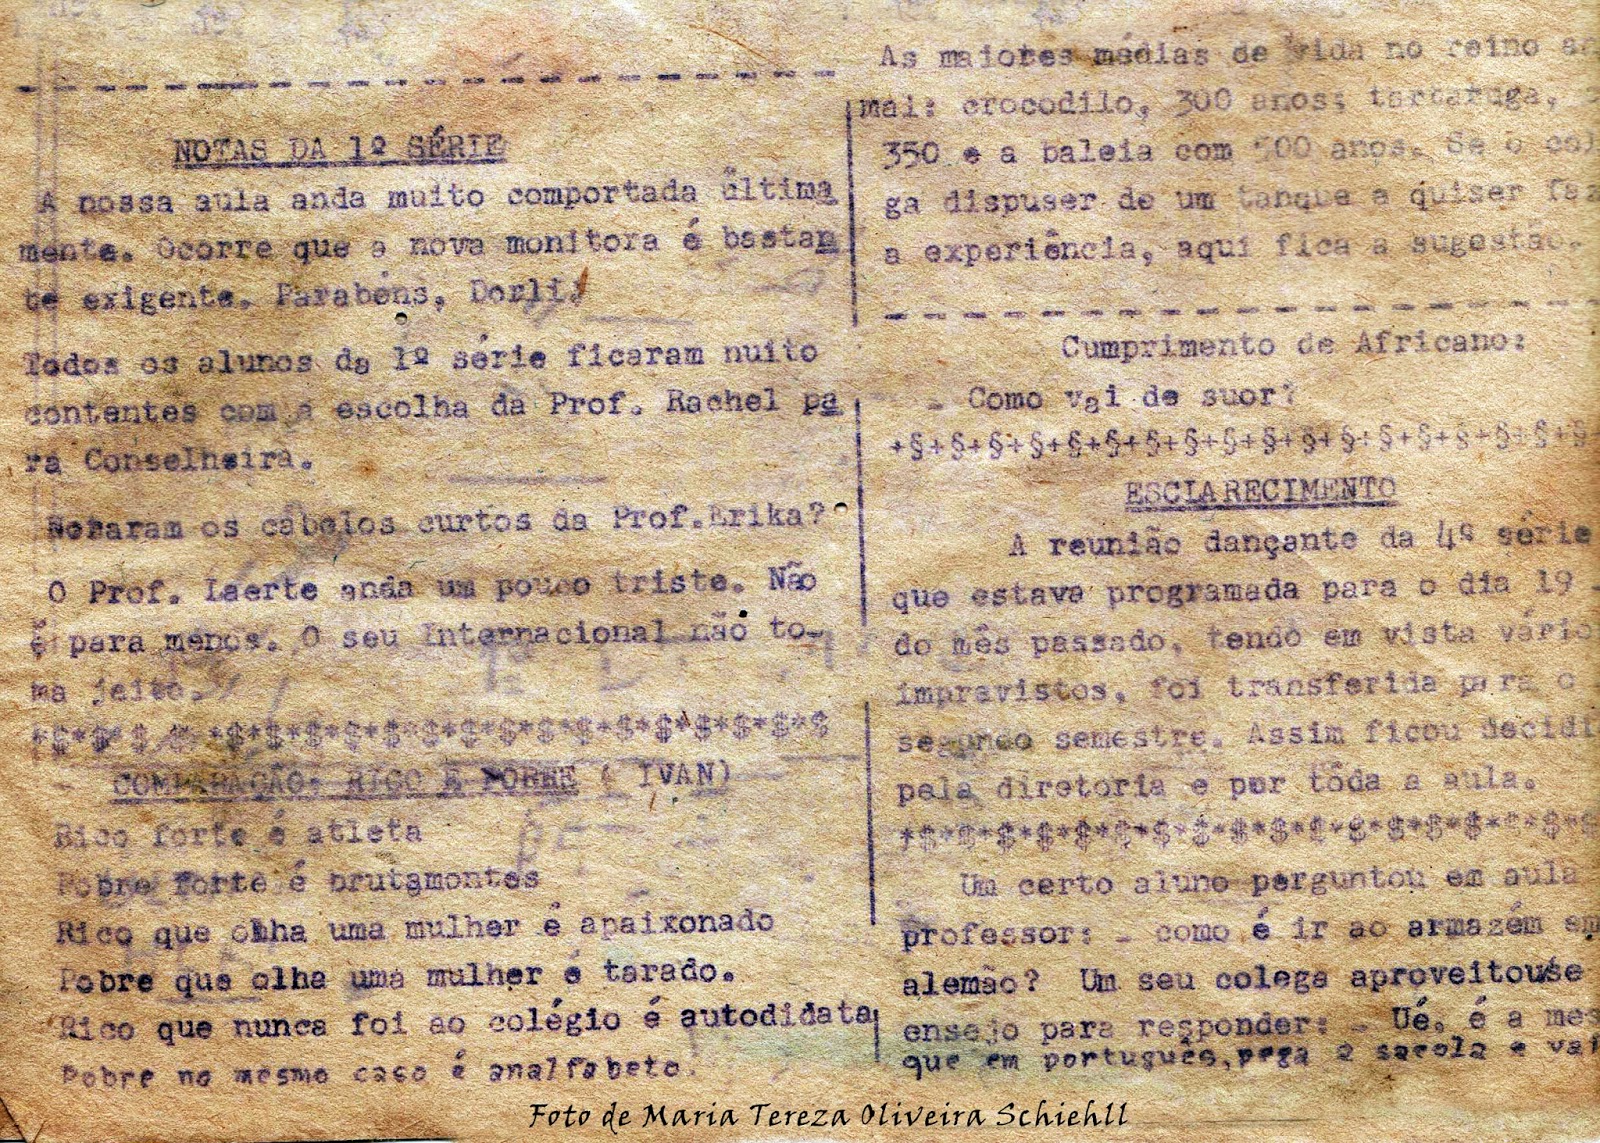 NOTAS DA 1ª SÉRIE
A nossa aula anda muito comportada última
mente. Ocorre que a nova monitora é bastan
te exigente. Parabéns, Dorli!
Todos os alunos da 1ª série ficaram muito
contentes com a escolha da Prof. Rachel pa
ra Conselheira.
Notaram os cabelos curtos da Prof.Erika?
O Prof. Laerte anda um pouco triste. Não
é para menos. O seu Internacional não to-
ma jeito.
*$*$*$*$*$*$*$*$*$*$*$*$*$*$*$*$*$*$*$*$*$
COMPARAÇÃO: RICO E POBRE ( IVAN)
Rico forte é atleta
Pobre forte é brutamontes
Rico que olha uma mulher é apaixonado
Pobre que olha uma mulher é tarado.
Rico que nunca foi ao colégio é autodidata
Pobre no mesmo caso é analfabeto.
As maiores médias de vida no reino an
mal: crocodilo, 300 anos; tartaruga,
350 e a baleia com 500 anos. Se o col
ga dispuser de um tanque e quiser faz
a experiência, aqui fica a sugestão.
Cumprimento de Africano:
- Como vai de suor?
+§+§+§+§+§+§+§+§+§+§+§+§+§+§+§+§+§+§
ESCLARECIMENTO
A reunião dançante da 4ª série
que estava programada para o dia 19
do mês passado, tendo em vista vário
impravistos, foi transferida para o
segundo semestre. Assim ficou decidi
pela diretoria e por tôda a aula.
*$*$*$*$*$*$*$*$*$*$*$*$*$*$*$*$*$*$
Um certo aluno perguntou em aula
professor: - como é ir ao armazém em
alemão? Um seu colega aproveitou se
ensejo para responder: - Ué, é a mes
que em português, pega a sacola e vai
Foto de Maria Tereza Oliveira Schiehll